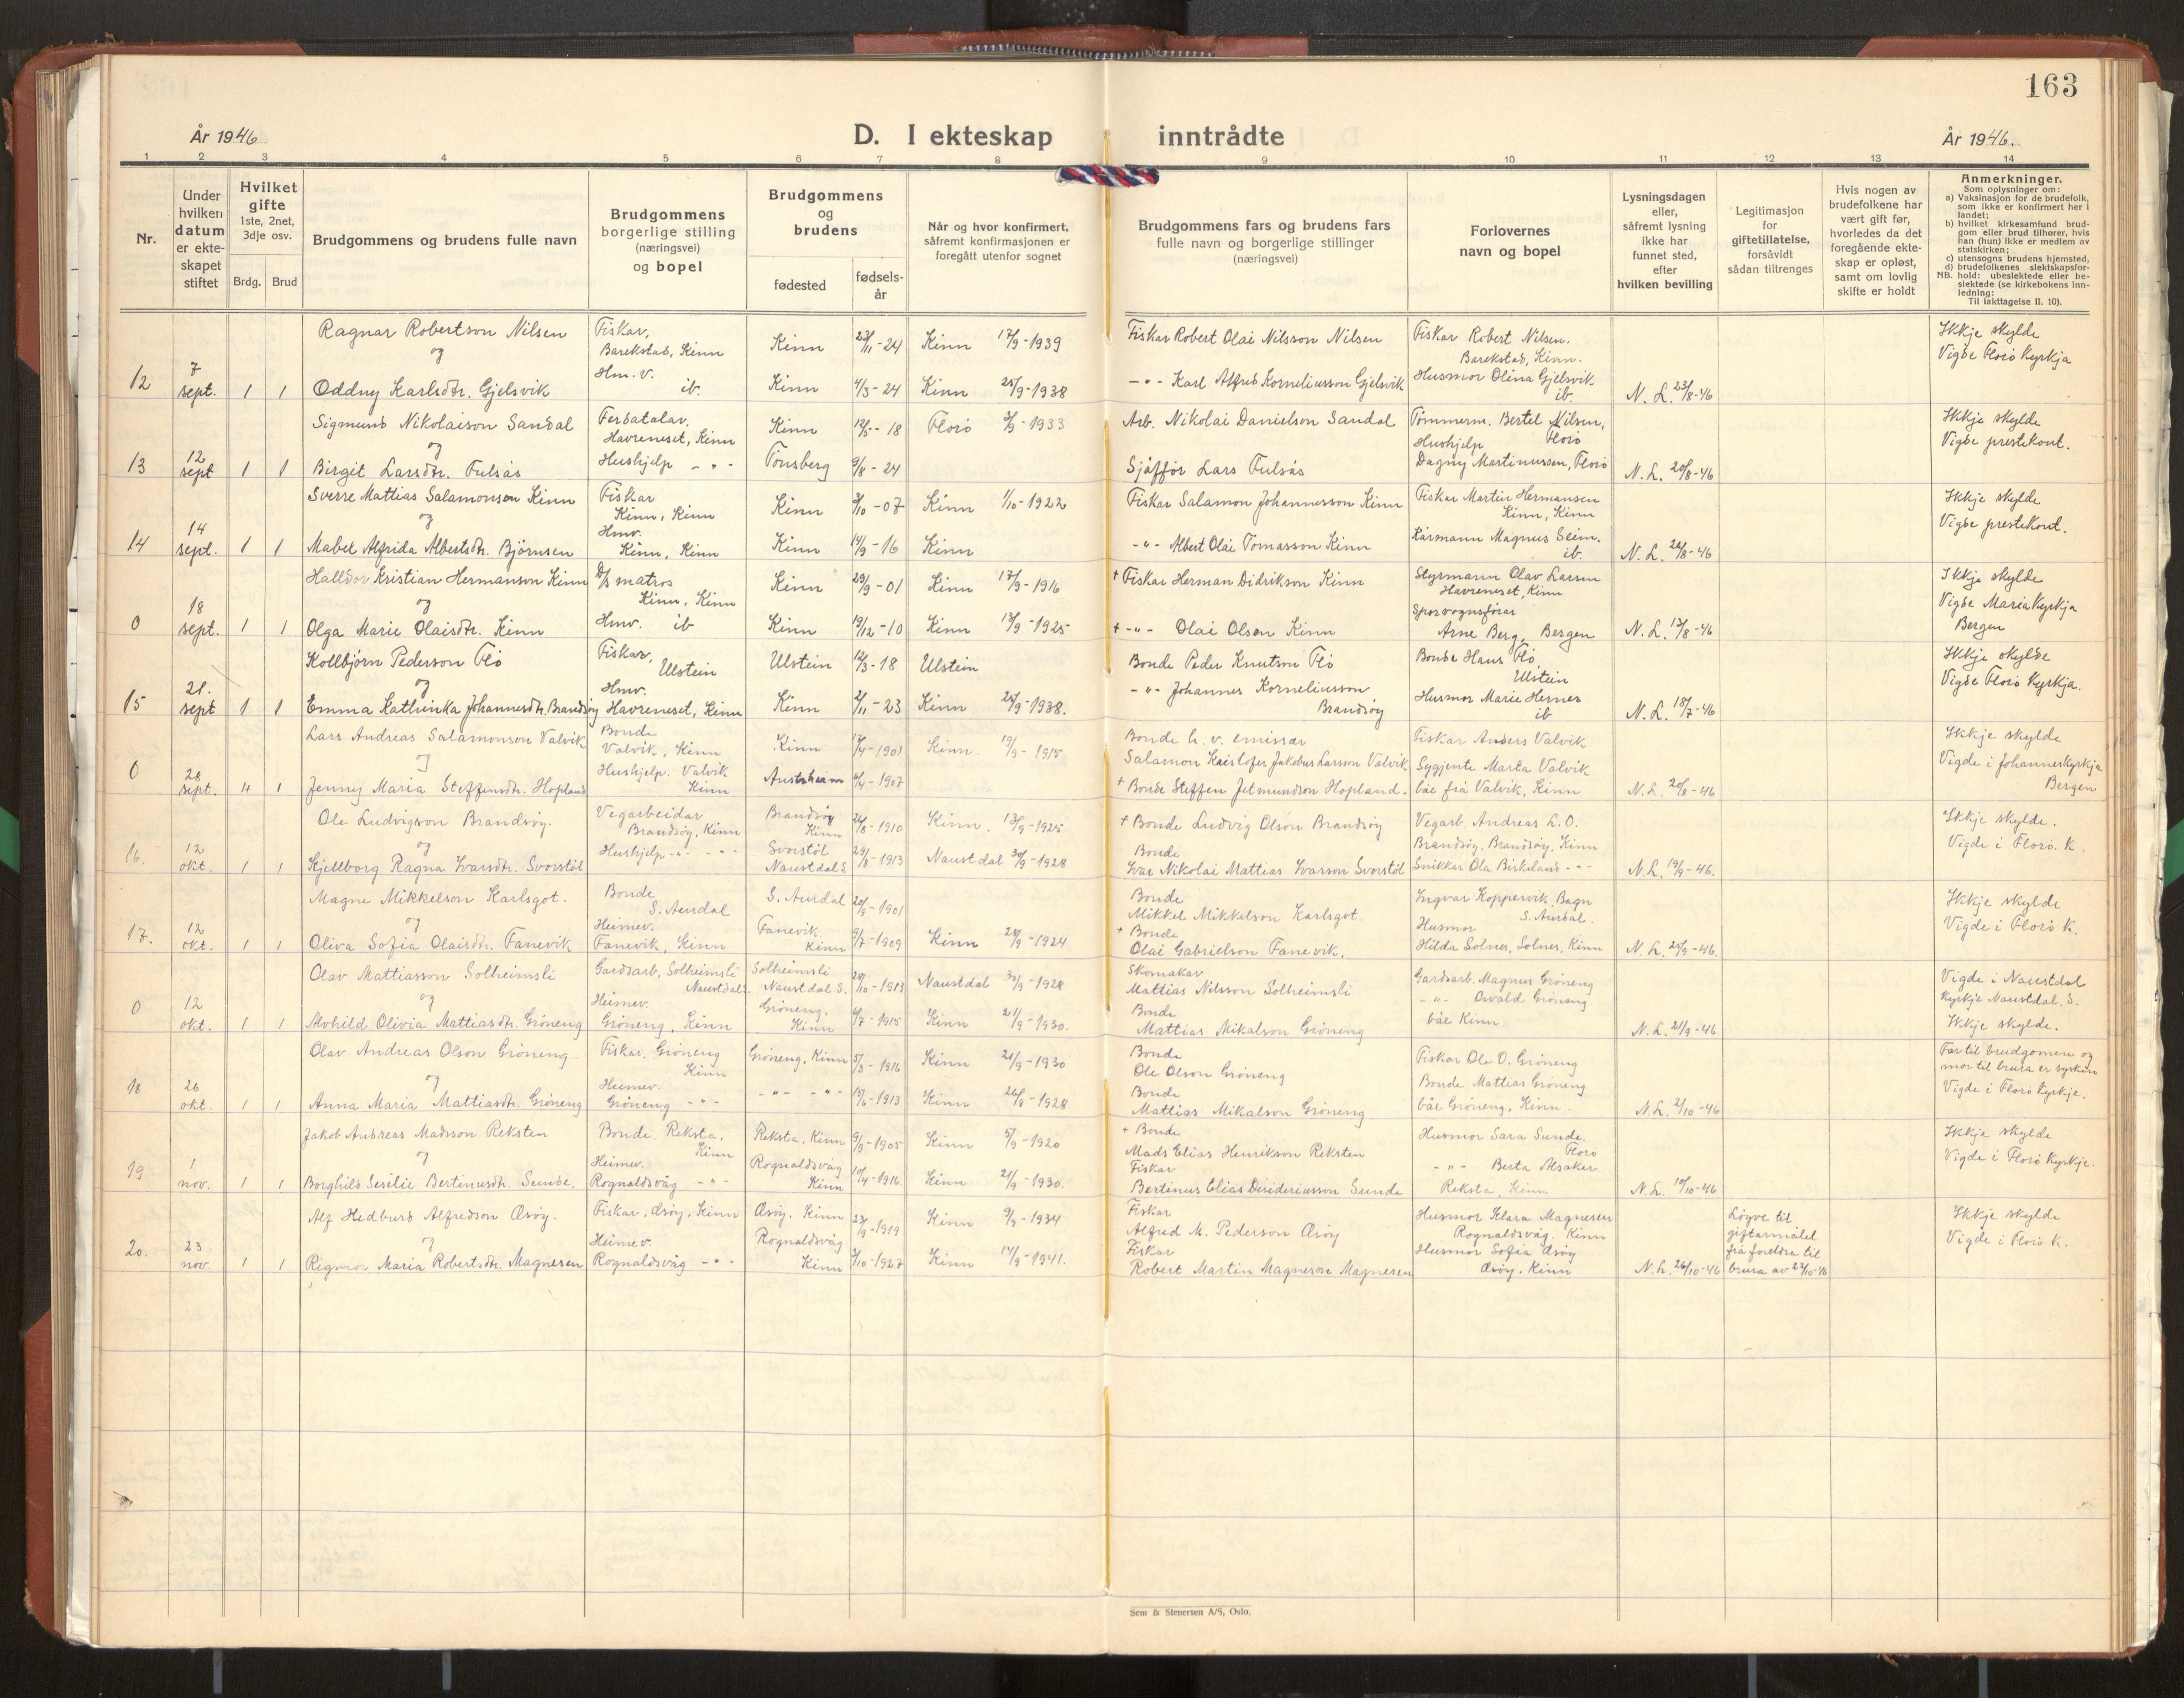 163
År 1946
D. I ekteskap inntrådte
År 1946.
1 2 3 4 5 6 7 8 9 10 11 12 13 14
Nr.
Under
hvilken
datum
er ekte-
skapet
stiftet
Hvilket
gifte
1ste, 2net,
3dje osv.
Brdg. Brud
Brudgommens og brudens fulle navn
Brudgommens
borgerlige stilling
(næringsvei)
og bopel
Brudgommens
og
brudens
fødested
fødsels-
år
Når og hvor konfirmert,
såfremt konfirmasjonen er
foregått utenfor sognet
Brudgommens fars og brudens fars
fulle navn og borgerlige stillinger
(næringsvei)
Forlovernes
navn og bopel
Lysningsdagen
eller,
såfremt lysning
ikke har
funnet sted,
efter
hvilken bevilling
Legitimasjon
for
giftetillatelse,
forsåvidt
sådan tiltrenges
Hvis nogen av
brudefolkene har
vært gift før,
hvorledes da det
foregående ekte-
skap er opløst,
samt om lovlig
skifte er holdt
Anmerkninger.
Som oplysninger om:
a) Vaksinasjon for de brudefolk,
som ikke er konfirmert her i
landet;
b) hvilket kirkesamfund brud-
gom eller brud tilhører, hvis
han (hun) ikke er medlem av
statskirken;
c) utensogns brudens hjemsted,
d) brudefolkenes slektskapsfor-
NB. hold: ubeslektede eller be-
slektede (se kirkebokens inn-
ledning:
Til iakttagelse II. 10).
Ragnar Robertson Nilsen Fiskar, Kinn 23/11-24 Kinn 17/9-1939 Fiskar Robert Olai Nilsson Nilsen Fiskar Robert Nilsen. Ikkje skylde
og Barekstad, Kinn Barekstad, Kinn. Vigde Florö Kyrkja
12 7 sept. 1 1 Oddny Karlsdtr. Gjelsvik Hm.v. ib. Kinn 4/3-24 Kinn 25/9-1938 -"- Karl Alfred Korneliusson Gjelsvik Husmor Olina Gjelsvik ib. N. L. 23/8-46
Sigmund Nikolaison Sandal Ferdatalar, Kinn 12/5-18 Florö 3/9-1933 Arb. Nikolai Danielson Sandal Tömmerm. Bertel Nilsen, Ikkje skylde
og Havreneset, Kinn Florö Vigde prestekont.
13 12 sept 1 1 Birgit Larsdtr. Fulsås Hushjelp -"- Tönsberg 9/8-24 Sjåfför Lars Fulsås Hushjelp Dagny Martinussen, Florö N. L. 20/8-46
Sverre Mattias Salamonsen Kinn Fiskar Kinn 3/10-07 Kinn 1/10-1922 Fiskar Salamon Johannesson Kinn Fiskar Martin Hermansen Ikkje skylde
og Kinn, Kinn Kinn, Kinn Vigde prestekont.
14 14 sept. 1 1 Mabel Alfrida Albertsdtr. Björnsen Hmv. Kinn, Kinn Kinn 14/9-16 Kinn -"- Albert Olai Tomasson Kinn Kårmann Magnus Seim. ib. N. L. 26/8-46
Halldor Kristian Hermanson Kinn D/s matros Kinn 29/9-01 Kinn 17/9-1916 + Fiskar Herman Didrikson Kinn Styrmann Olav Larsen Ikkje skylde
og Kinn, Kinn Havreneset, Kinn Vigde Maria Kyrkja
0 18 sept. 1 1 Olga Marie Olaisdtr. Kinn Hmv. ib Kinn 19/12-10 Kinn 13/9-1925 + -"- Olai Olsen Kinn Sporvognsförar Arne Berg, Bergen N. L. 13/8-46 Bergen
Kollbjörn Pederson Flö Fiskar, Ulstein 12/3-18 Ulstein Bonde Peder Knutson Flö Bonde Hans Flö, Ikkje skylde
og Ulstein Ulstein Vigde Florö Kyrkja.
15 21. sept 1 1 Emma Kathinka Johannesdtr. Brandsöy Hmv. Havreneset, Kinn Kinn 2/11-23 Kinn 25/9-1938. -"- Johannes Korneliusson Brandsöy Husmor Marie Hernes ib N. L. 18/7-46
Lars Andreas Salamonson Valvik Bonde Kinn 17/4-1901 Kinn. 19/9-1915 Bonde h. v. emissær Fiskar Anders Valvik Ikkje skylde
og Valvik, Kinn Salamon Kristofer Jakobus Larsson Valvik Sygjente Marta Valvik Vigde i Johanneskyrkja
0 28 sept. 4 1 Jenny Maria Steffensdtr. Hopland Hushjelp. Valvik Kinn Austrheim 4/4-1907 + Bonde Steffen Jetmundson Hopland. båe frå Valvik, Kinn N. L. 20/8-46 Bergen
Ole Ludvigson Brandsöy. Vegarbeidar Brandsöy 24/8-1910 Kinn. 13/9-1925 + Bonde Ludvig Olson Brandsöy Vegarb. Andreas L. O. Ikkje skylde.
og Brandsöy, Kinn Kinn Brandsöy, Brandsöy, Kinn Vigde i Florö. K.
16. 12 okt. 1 1 Kjellborg Ragna Ivarsdtr. Svorstöl Hushjelp -"- -"- Svorstöl Naustdal S 29/8-1913 Naustdal 30/9-1928 Bonde Ivar Nikolai Mattias Ivarson Svorstöl Snikkar Ola Birkeland -"- N. L. 19/9-46.
Magne Mikkelson Karlsgot. Bonde S. Aurdal 20/9-1901 Bonde Yngvar Koppervik, Bagn Ikkje skylde
og S. Aurdal Mikkel Mikkelson Karlsgot. S. Aurdal. Vigde i Florö K.
17. 12 okt. 1 1 Oliva Sofia Olaisdtr. Fanevik Heimev. Fanevik, Kinn Fanevik. Kinn 9/7-1909 Kinn 28/9-1924 + Bonde Olai Gabrielson Fanevik. Husmor Hilda Solnes, Solnes, Kinn N. L. 25/9-46.
Olav Mattiasson Solheimsli Gardsarb. Solheimsli Solheimsli 28/10-1913 Naustdal 30/9-1928 Skomakar Gardsarb. Magnus Gröneng Vigde i Naustdal
og Naustdal S. Naustdal S. Mattias Nilsson Solheimsli -"- Osvald Gröneng. Kyrkje Naustdal, S.
0 12 okt. 1 1 Alvhild Olivia Mattiasdtr. Gröneng Heimev. Gröneng, Kinn Gröneng. Kinn 4/7-1915 Kinn 21/9-1930. Bonde Mattias Mikalson Gröneng båe Kinn. N. L. 21/9-46 Ikkje skylde.
Olav Andreas Olson Gröneng. Fiskar, Gröneng Gröneng, Kinn 5/3-1916 Kinn 21/9-1930 Bonde Fiskar Ole O. Gröneng Far til brudgomen og
og Kinn Ole Olson Gröneng Bonde Mattias Gröneng mor til brura er syskin
18 26 okt. 1 1 Anna Maria Mattiasdtr. Gröneng Heimev. Gröneng -"- -"- -"- 15/6-1913 Kinn 26/8-1928 Bonde Mattias Mikalson Gröneng båe Gröneng, Kinn. N. L. 2/10-46 Vigde i Florö Kyrkje.
Jakob Andreas Madsson Reksten Bonde Reksta. Reksta, Kinn 9/9-1905 Kinn 5/9-1920 + Bonde Husmor Sara Sunde. Ikkje skylde
og Kinn Mads Elias Henrikson Reksten Florö Vigde i Florö Kyrkje.
19 1 nov. 1 1 Borghild Sesilie Bertinusdtr. Sunde. Heimev. Rognaldsvåg -"- Rognaldsvåg Kinn 10/4-1916 Kinn 21/9-1930. Fiskar Bertinus Elias Desideriusson Sunde -"- Berta Alsaker Reksta, Kinn N. L. 10/10-46
Alf Hedburd Alfredson Åsöy. Fiskar, Åsöy, Kinn Åsöy. Kinn 23/9-1919 Kinn 9/9-1934 Fiskar Husmor Klara Magnesen Löyve til Ikkje skylde
og Alfred M. Pederson Åsöy Rognaldsvåg. Kinn giftarmålet Vigde i Florö K.
20. 23 nov. 1 1 Rigmor Maria Robertsdtr. Magnesen Heimev. Rognaldsvåg -"- Rognaldsvåg Kinn 3/10-1927 Kinn 14/9-1941. Fiskar Robert Martin Magneson Magnesen Husmor Sofia Åsöy Åsöy. Kinn N. L. 26/10-46 frå foreldra til brura av 22/10-46
Sem & Stenersen A/S, Oslo.